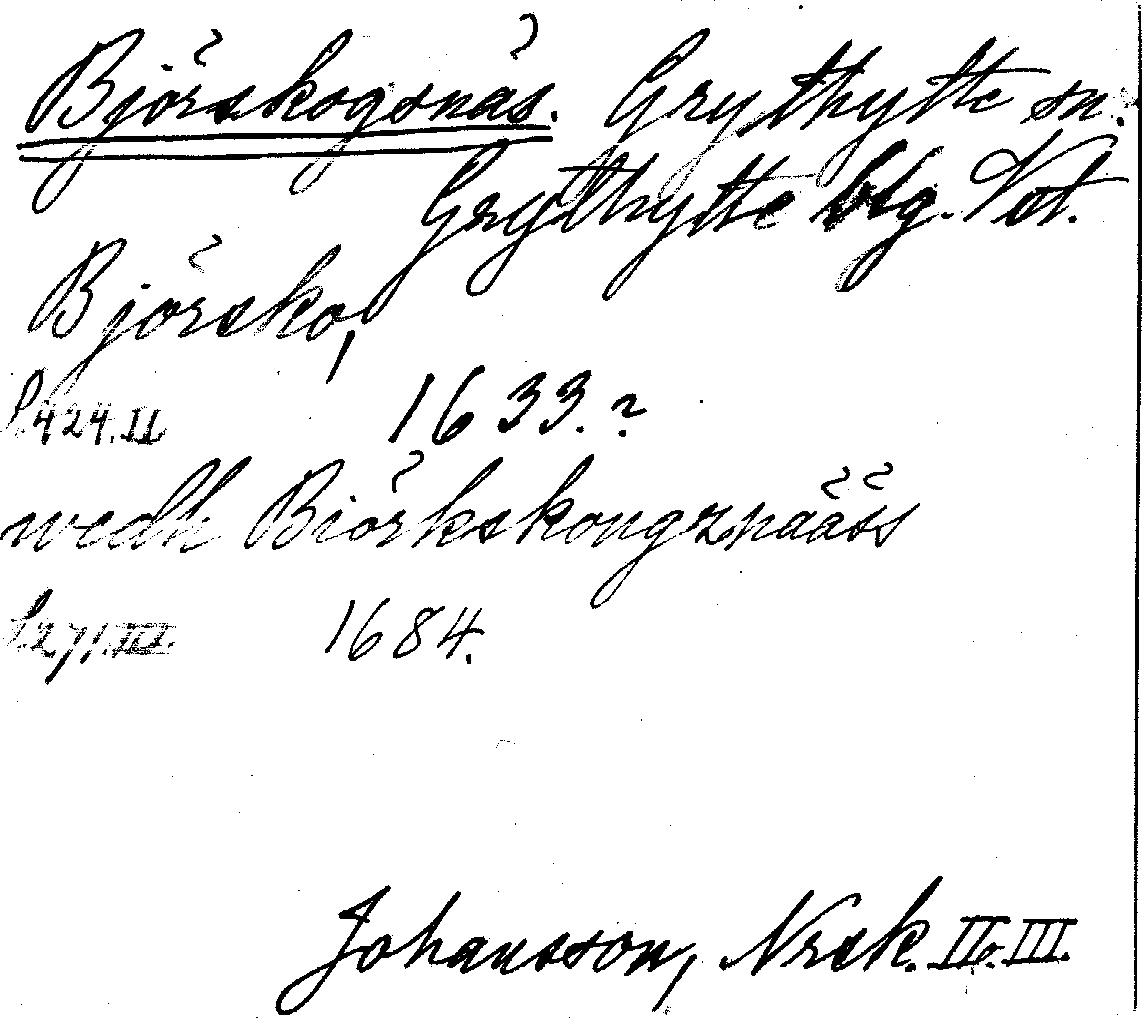 Björskogsnäs. Grythytte sn.
Grythytte btg. Vst.
Björsko,
S. 424. II 1633.?
wedh Biörkskongznääss
S. 271. III. 1684.
Johansson, Nrsk. II o. III.